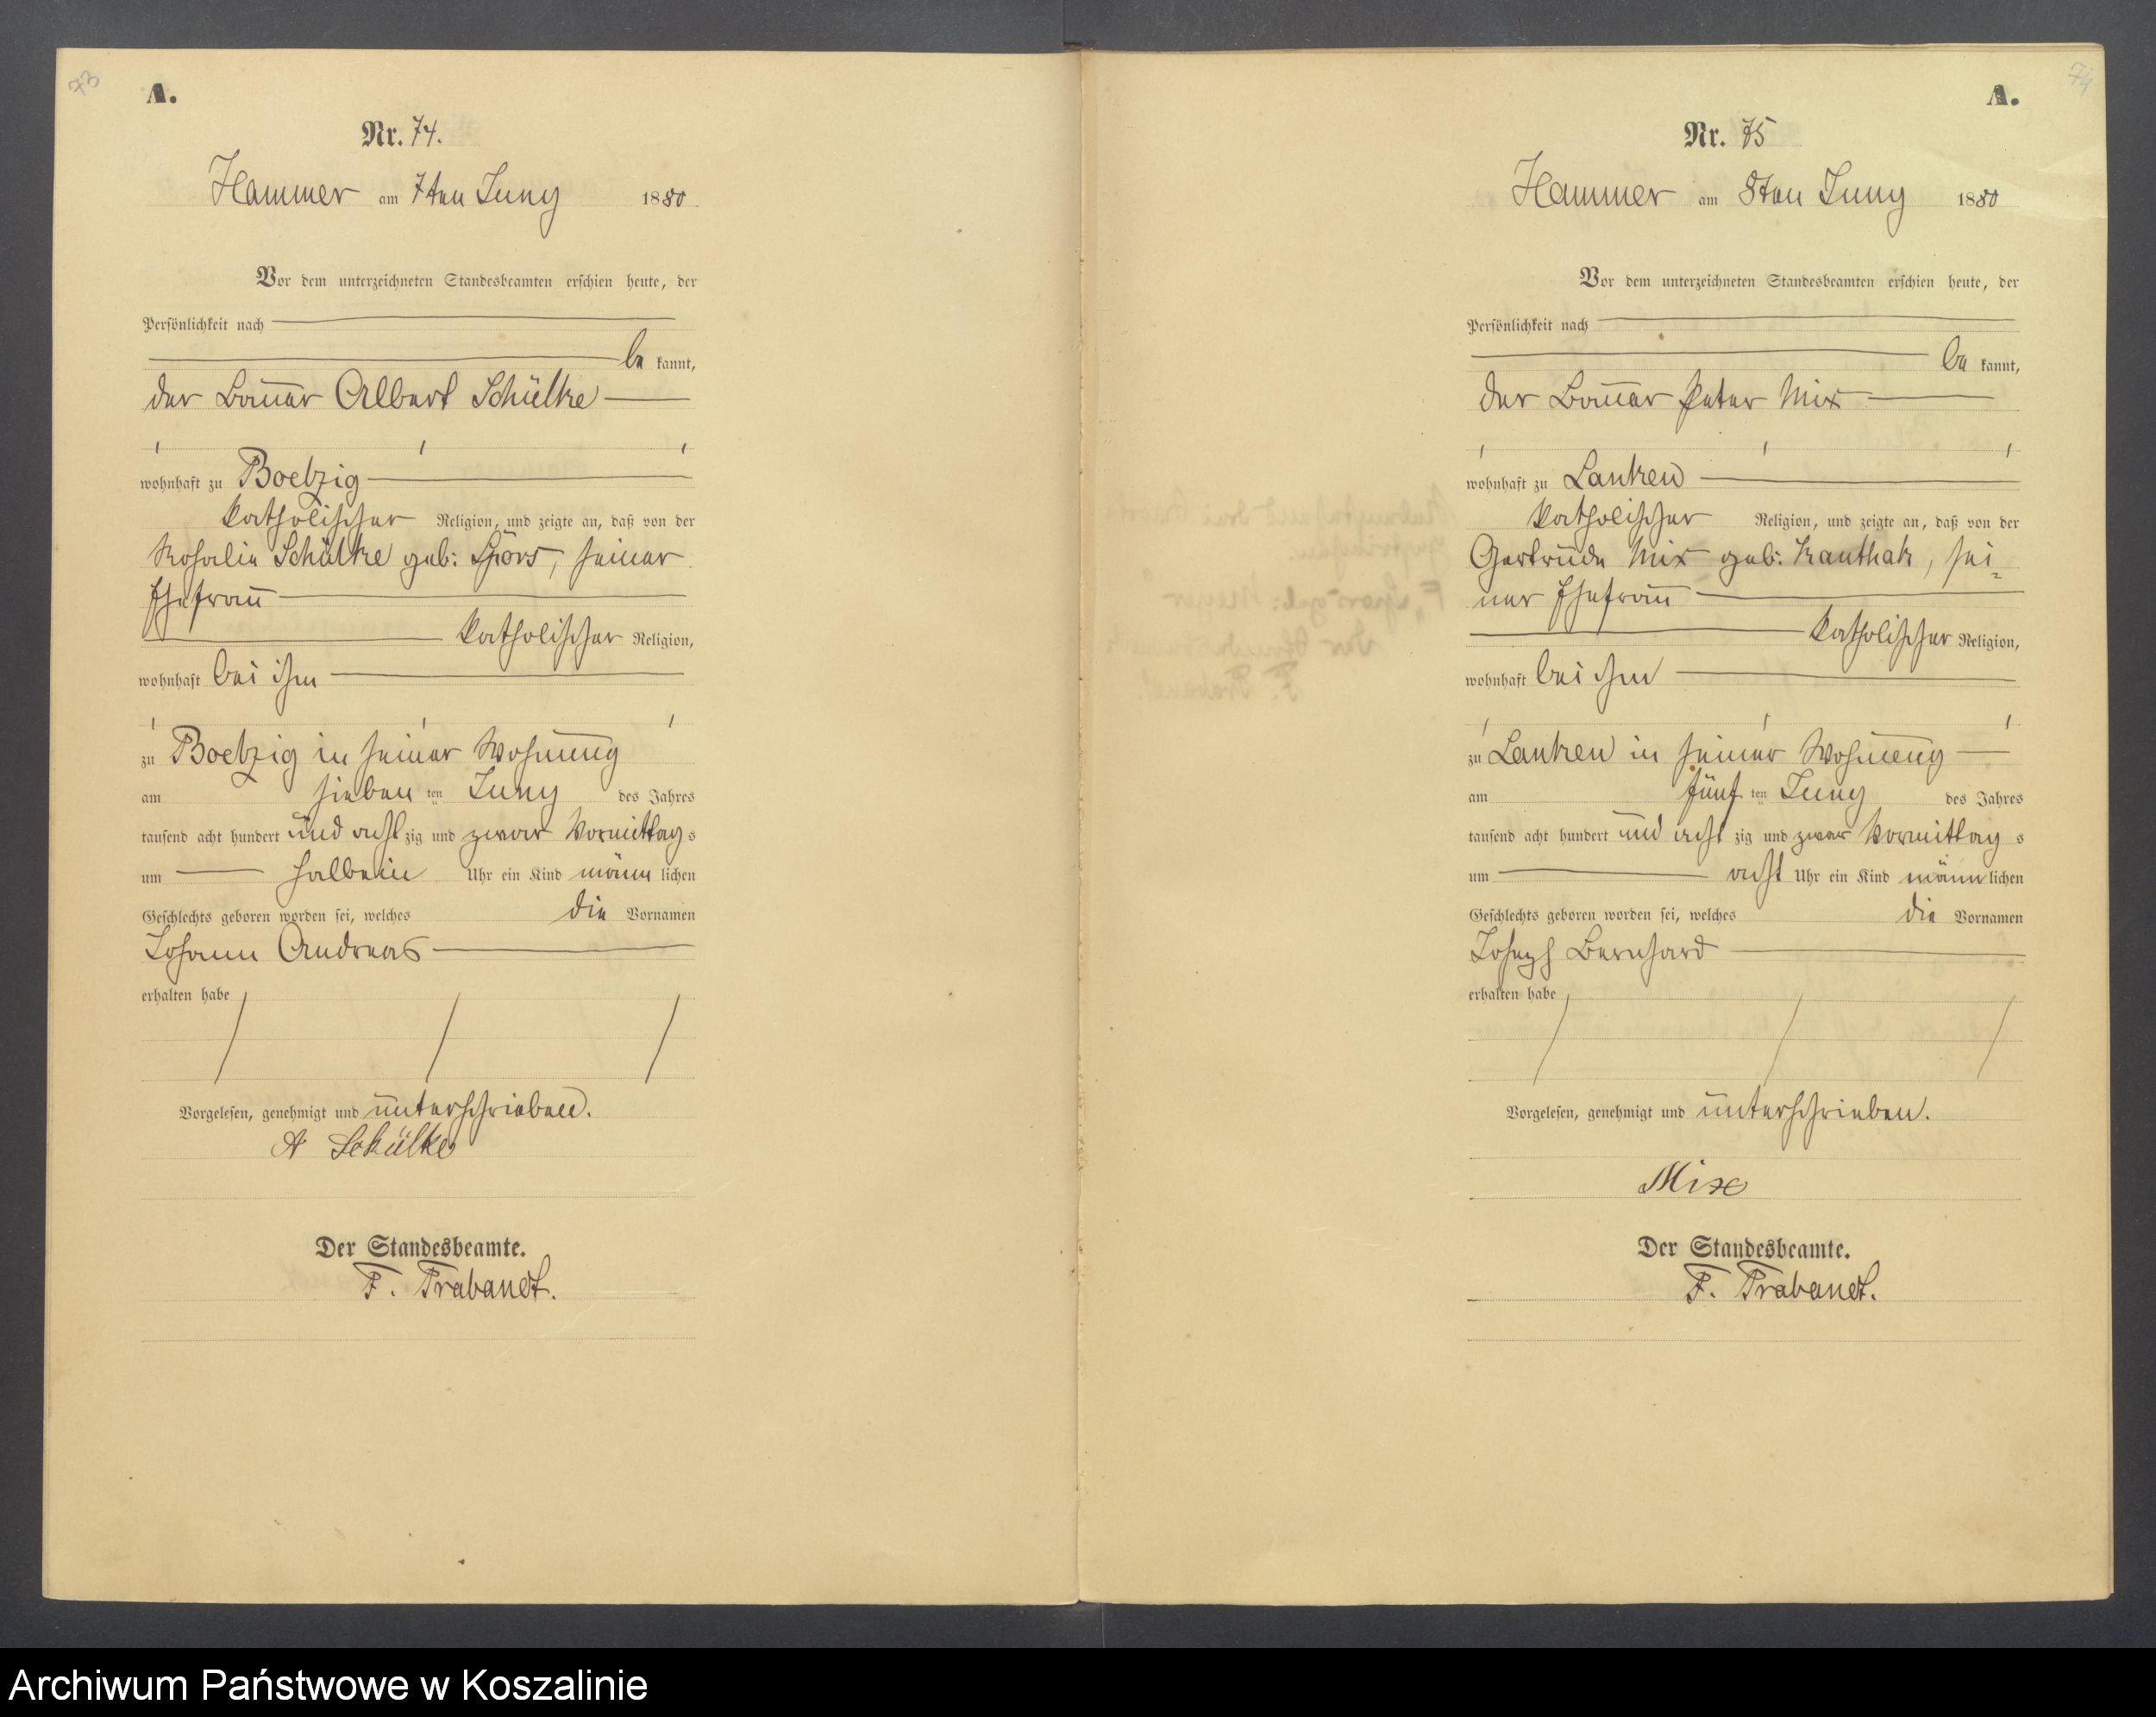 73
A.
Nr. 74.
Hammer am 7ten Juny 1880
Vor dem unterzeichneten Standesbeamten erschien heute, der
Persönlichkeit nach
be kannt,
der Bauer Albert Schülke
wohnhaft zu Boetzig
katholischer Religion, und zeigte an, daß von der
Rosalie Schülke geb: Spörs, seiner
Ehefrau
katholischer Religion,
wohnhaft bei ihm
zu Boetzig in seiner Wohnung
am sieben ten Juny des Jahres
tausend acht hundert und acht zig und zwar Vormittag s
um halb ein Uhr ein Kind männ lichen
Geschlechts geboren worden sei, welches die Vornamen
Johann Andreas
erhalten habe
Vorgelesen, genehmigt und unterschrieben.
A Schülke
Der Standesbeamte.
F. Trabandt.
74
A.
Nr. 75
Hammer am 8ten Juny 1880
Vor dem unterzeichneten Standesbeamten erschien heute, der
Persönlichkeit nach
be kannt,
der Bauer Peter Mix
wohnhaft zu Lanken
katholischer Religion, und zeigte an, daß von der
Gertrude Mix geb: Kanthak, sei
ner Ehefrau
katholischer Religion,
wohnhaft bei ihm
zu Lanken in seiner Wohnung
am fünf ten Juny des Jahres
tausend acht hundert und acht zig und zwar Vormittag s
um acht Uhr ein Kind männ lichen
Geschlechts geboren worden sei, welches die Vornamen
Joseph Bernhard
erhalten habe
Vorgelesen, genehmigt und unterschrieben.
Mix
Der Standesbeamte.
F. Trabandt.
Archiwum Państwowe w Koszalinie